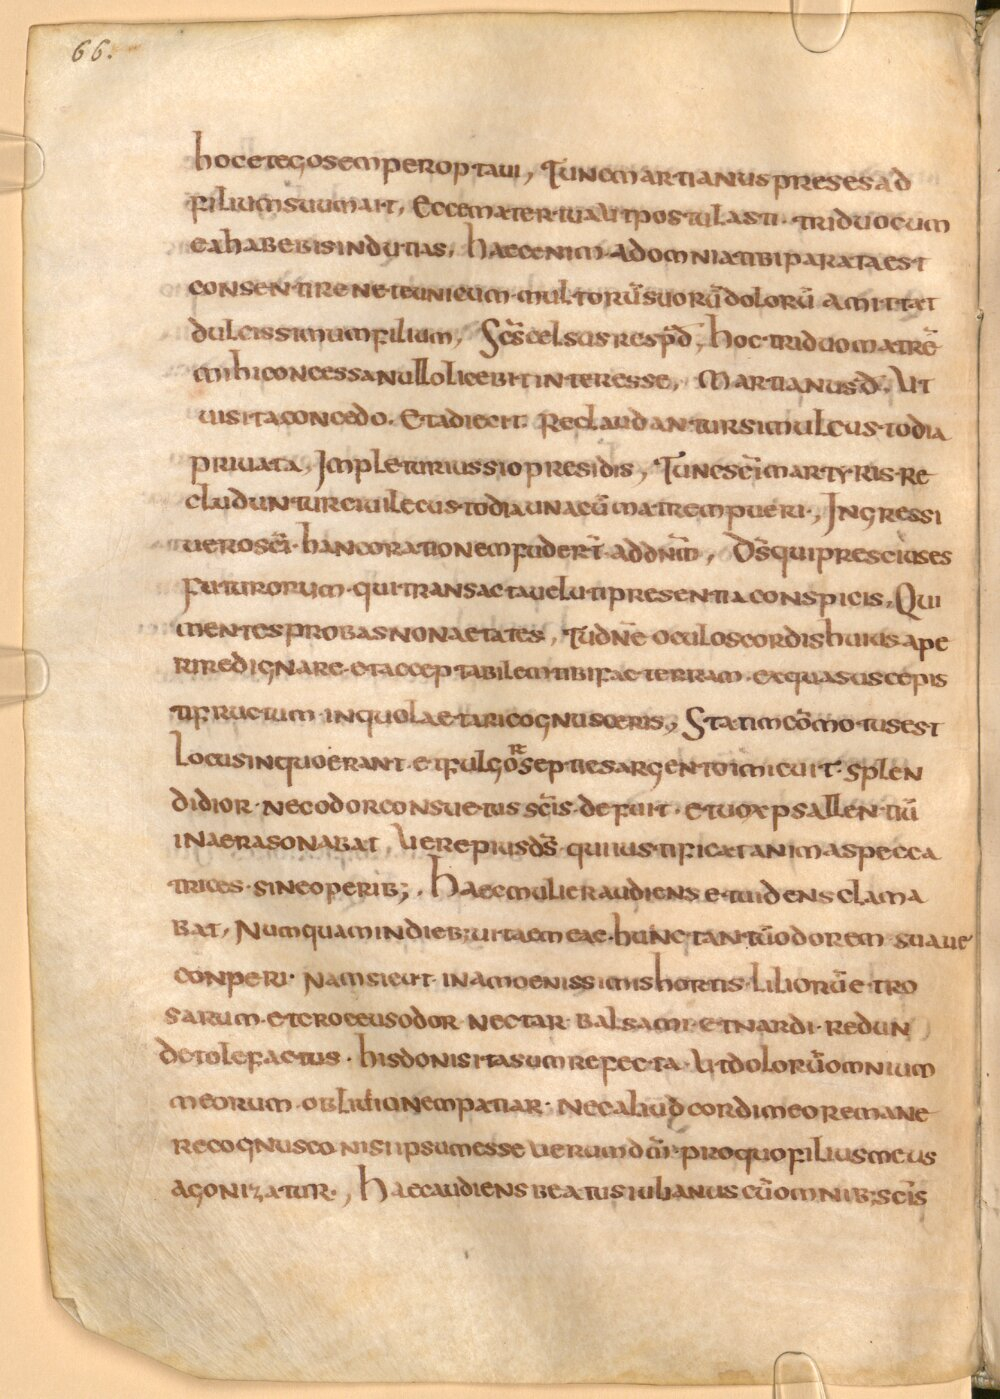 66.
hoc et ego semper optaui, Tunc martianus preses ad
filium suum ait, Ecce mater tua ut postulasti. triduo cum
ea habebis indutias. haec enim ad omnia tibi parata est
consentire ne te unicum multorū suorū dolorū amittat
dulcissimum filium, Scs̄ celsus resp̄d, hoc triduo matrē
mihi concessa nullo licebit interesse, Martianus d̄. Ut
uis ita concedo. Et adiecit. Recludantur simul custodia
priuata, Impletur iussio presidis, Tunc scī martyris re
cluduntur ciuile custodia una cū matrem pueri, Ingressi
uero scī. hanc orationem fuder̄t ad dn̄m, Ds̄ qui prescius es
futurorum. qui transacta uelut presentia conspicis, Qui
mentes probas non aetates, Tu dn̄e oculos cordis huius ape
rire dignare. et acceptabilem tibi fac terram. ex qua suscepis
ti fructum in quo laetari cognusceris, Statim cōmotus est
locus in quo erant. et fulgor septies argento imicuit. splen
didior. nec odor consuetus scīs. defuit. et uox psallentiū
in aera sonabat, Uere pius ds̄ qui iustificat animas pecca
trices. sine operib; . Haec mulier audiens et uidens clama
bat, Numquam in dieb; uitae meae. hunc tantū odorem suaue
conperi. nam sicut in amoenissimis hortis. liliorū et ro
sarum. et croceus odor nectar balsami. et nardi. redun
det olefactus. his donis ita sum refecta. Ut dolorū omnium
meorum. obliuicinem patiar. nec aliud cordi meo remane
re cognusco nisi ipsum esse uerum dm̄. pro quo filius meus
agonizatur., Haec audiens beatus iulianus cū omnib; scīs